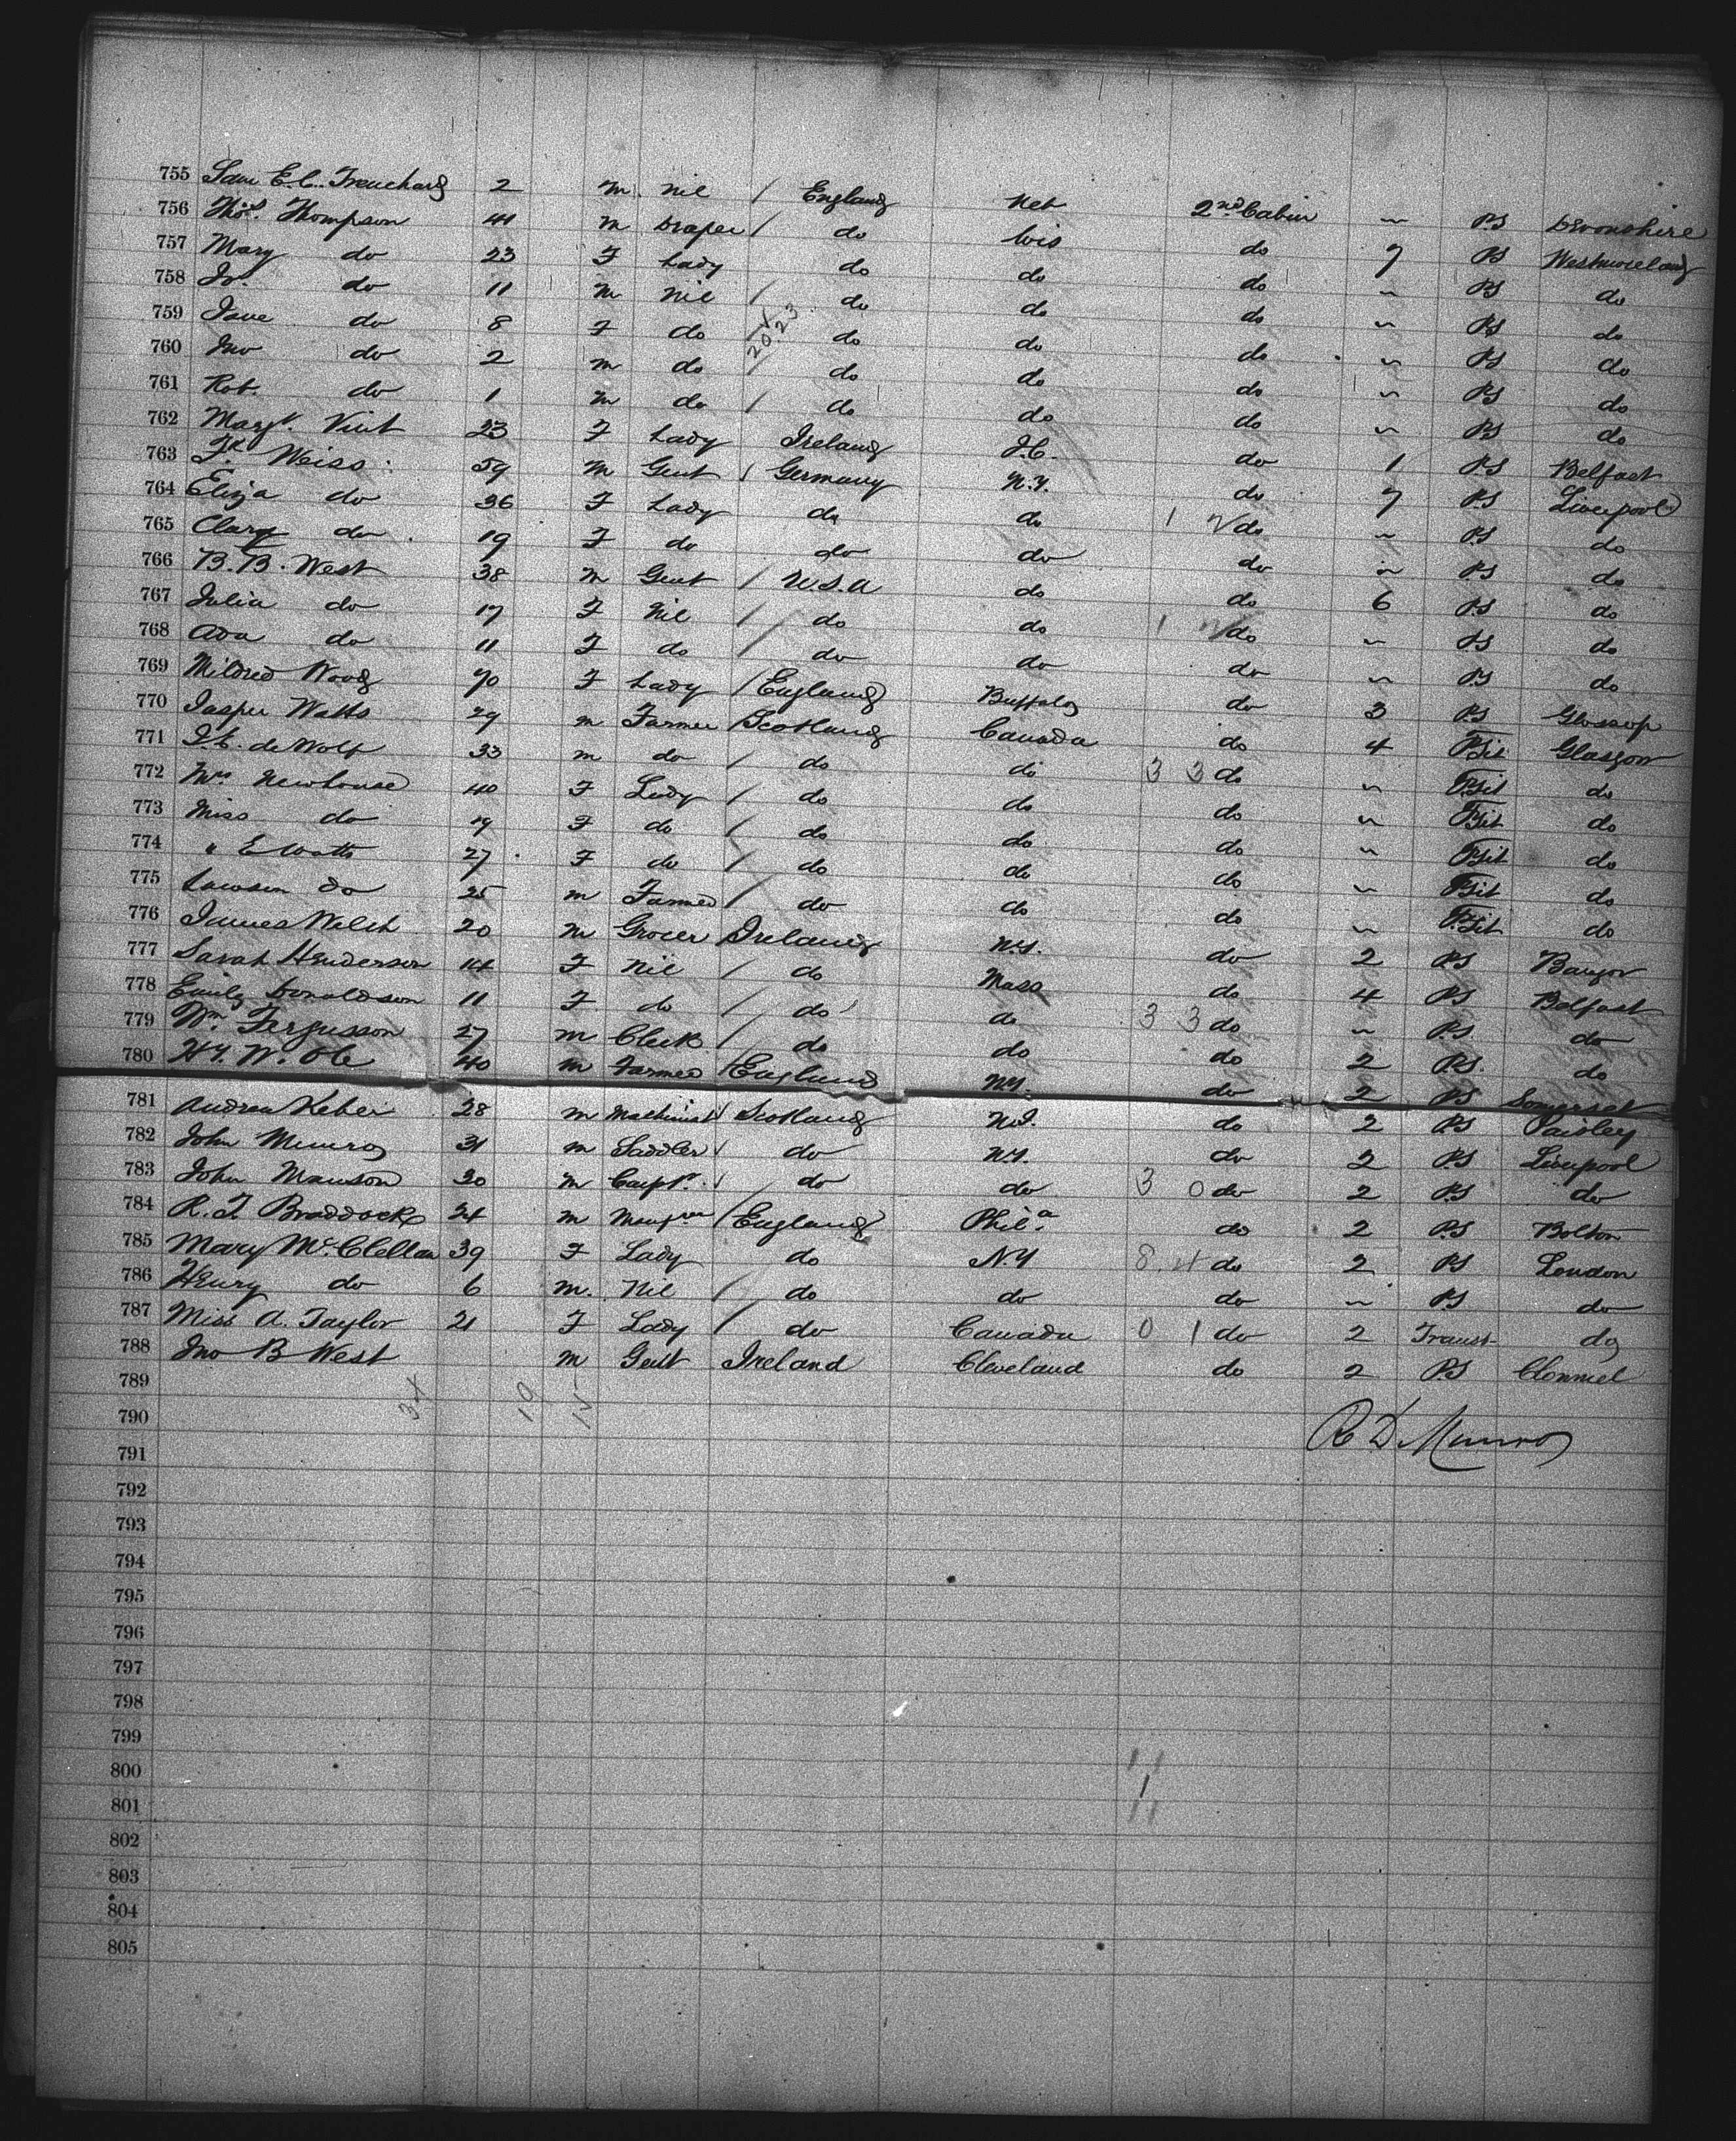 755 Sam E.C. Trenchard 2 m nil / England Neb 2nd Cabin ~ P.S Devonshire
756 Thos. Thompson 41 m Draper / do Wis do 7 PS Westmoreland
757 Mary do 23 F Lady do do do ~ PS do
758 Jos. do 11 m nil / do do do ~ PS do
759 Jane do 8 F do do do do ~ PS do
20.23
760 Jno do 2 m do / do do do ~ PS do
761 Rob. do 1 m do / do do do ~ PS do
762 Margt. Vint 23 F Lady Ireland J.C. do 1 PS Belfast
763 Fk Weiss 59 m Gent / Germany N.Y. do 7 P.S Liverpool
764 Eliza do 36 F Lady do do 1 do ~ P.S do
765 Clara do 19 F do do do do ~ PS do
766 B.B. West 38 m Gent / U.S.A do do 6 P.S do
767 Julia do 17 F Nil / do do 1 do ~ PS do
768 Ada do 11 F do / do do do ~ PS do
769 Mildred Wood 70 F Lady / England Buffalo do 3 P.S Glossop
770 Jasper Watts 29 m Farmer / Scotland Canada do 4 Glasgow
771 J.C. de Wolf 33 m do / do do 3 3 do ~ do
772 Mrs Newhouse 40 F Lady / do do do ~ do
773 Miss do 19 F do / do do do ~ do
774 " E Watts 27 F do / do do do ~ do
775 Lawson do 25 m Farmer / do do do ~ do
776 James Welch 20 m Grocer Ireland N.Y. do 2 PS Bangor
777 Sarah Henderson 14 F Nil / do Mass do 4 P.S Belfast
778 Emily Donaldson 11 F do / do do 3 3 do ~ P.S. do
779 Wm. Fergusson 27 m Clerk / do do do 2 P.S. do
780 Hy. W. 40 m Farmer / England NY. do 2 PS Somerset
781 Andrew 28 m Machinist Scotland N.J. do 2 P.S Paisley
782 John Munro 31 m Saddler do N.Y. do 2 P.S Liverpool
783 John Manson 30 m Carptr. do do 3 0 do 2 P.S do
784 R.J. Braddock 24 m / England Phila. do 2 P.S Bolton
785 Mary McClellan 39 F Lady do N.Y 8.4 do 2 PS London
786 Henry do 6 m. Nil / do do do ~ PS do
787 Miss A. Taylor 21 F Lady / do Canada 0 1 do 2 Transt do
788 Jno B West m Gent Ireland Cleveland do 2 P.S Clonmel
789
34 19 15
790
R D Munro
791
792
793
794
795
796
797
798
799
800
801
802
803
804
805